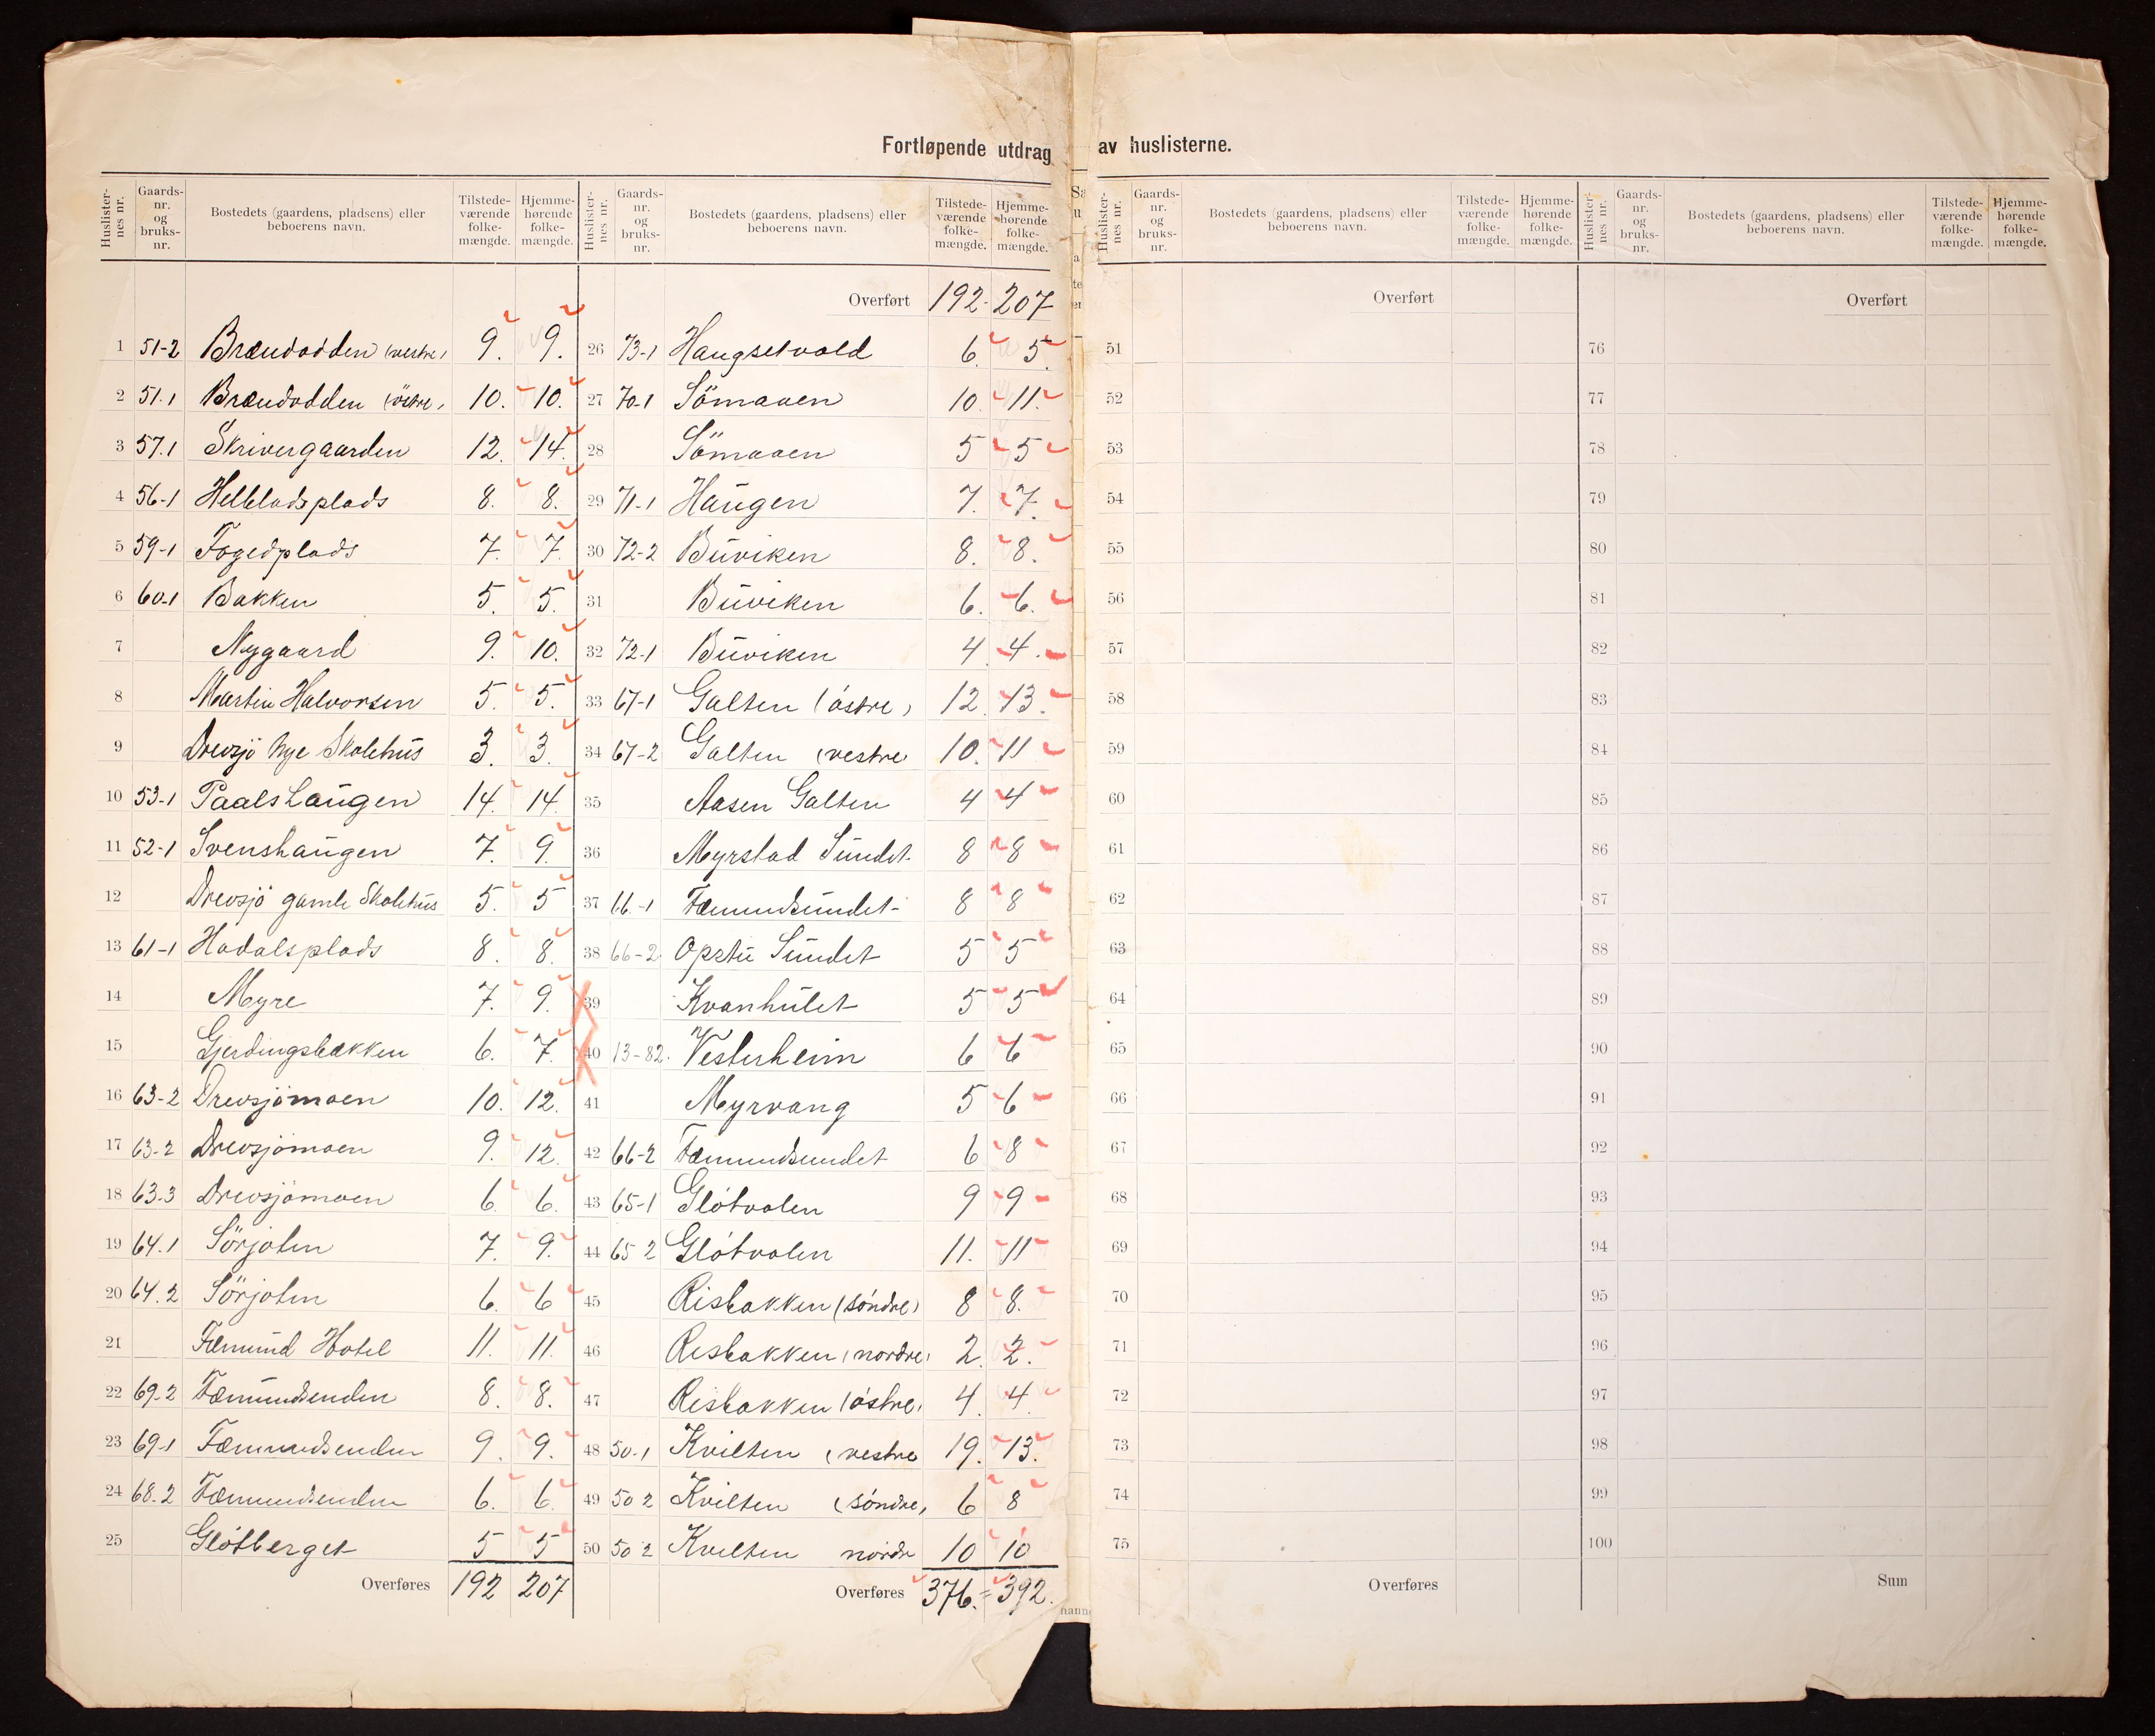 Fortløpende utdrag av huslisterne.
Huslisternes nr. Gaardsnr. og bruksnr. Bostedets (gaardens, pladsens) eller beboerens navn. Tilstedeværende folkemængde. Hjemmehørende folkemængde.
1 51-2 Brændodden (vestre) 9. 9.
2 51.1 Brændodden (östre, 10. 10.
3 57.1 Skrivergaarden 12. 14.
4 56-1 Helbladsplads 8. 8.
5 59-1 Fogedplads 7. 7.
6 60-1 Bakken 5. 5.
7 Nygaard 9. 10.
8 Martin Halvorsen 5. 5.
9 Drevsjö nye Skolehus 3. 3.
10 53-1 Paalshaugen 14. 14.
11 52-1 Svenshaugen 7. 9.
12 Drevsjö gamle Skolehus 5. 5
13 61-1 Hadalsplads 8. 8.
14 Myre 7. 9.
15 Gjerdingsbakken 6. 7.
16 63-2 Drevsjömoen 10. 12.
17 63-2 Drevsjömoen 9. 12.
18 63-3 Drevsjömoen 6. 6.
19 64.1 Sörjoten 7. 9.
20 64.2 Sörjoten 6. 6
21 Fæmund Hotel 11. 11.
22 69-2 Fæmundsenden 8. 8.
23 69-1 Fæmundsenden 9. 9.
24 68.2 Fæmundsenden 6. 6.
25 Glötberget 5 5
Overføres 192 207
Huslisternes nr. Gaardsnr. og bruksnr. Bostedets (gaardens, pladsens) eller beboerens navn. Tilstedeværende folkemængde. Hjemmehørende folkemængde.
Overført 192. 207
26 73-1 Haugsetvold 6. 5.
27 70-1 Sömaaen 10. 11.
28 Sömaaen 5 5
29 71-1 Haugen 7. 7.
30 72-2 Buviken 8. 8.
31 Buviken 6. 6.
32 72-1 Buviken 4. 4.
33 67-1 Galten (östre) 12. 13.
34 67-2 Galten (vestre 10. 11
35 Aasen Galten 4 4
36 Myrstad Sundet 8 8
37 66.-1 Fæmundsundet 8 8
38 66-2 Opstu Sundet 5 5
39 Kvanhulet 5 5
40 13-82. Vesterheim 6 6
41 Myrvang 5 6
42 66-2 Fæmundsundet 6 8
43 65-1 Glötvolen 9 9
44 65 2 Glötvolen 11. 11
45 Risbakken (söndre) 8 8.
46 Risbakken (nordre) 2. 2.
47 Risbakken (östre) 4. 4.
48 50-1 Kvilten (vestre 19. 13.
49 50 2 Kvilten (söndre, 6 8
50 50 2 Kvilten nordr 10 10
Overføres 376. = 392.
Huslisternes nr. Gaardsnr. og bruksnr. Bostedets (gaardens, pladsens) eller beboerens navn. Tilstedeværende folkemængde. Hjemmehørende folkemængde.
Overført
51
52
53
54
55
56
57
58
59
60
61
62
63
64
65
66
67
68
69
70
71
72
73
74
75
Overføres
Huslisternes nr. Gaardsnr. og bruksnr. Bostedets (gaardens, pladsens) eller beboerens navn. Tilstedeværende folkemængde. Hjemmehørende folkemængde.
Overført
76
77
78
79
80
81
82
83
84
85
86
87
88
89
90
91
92
93
94
95
96
97
98
99
100
Sum